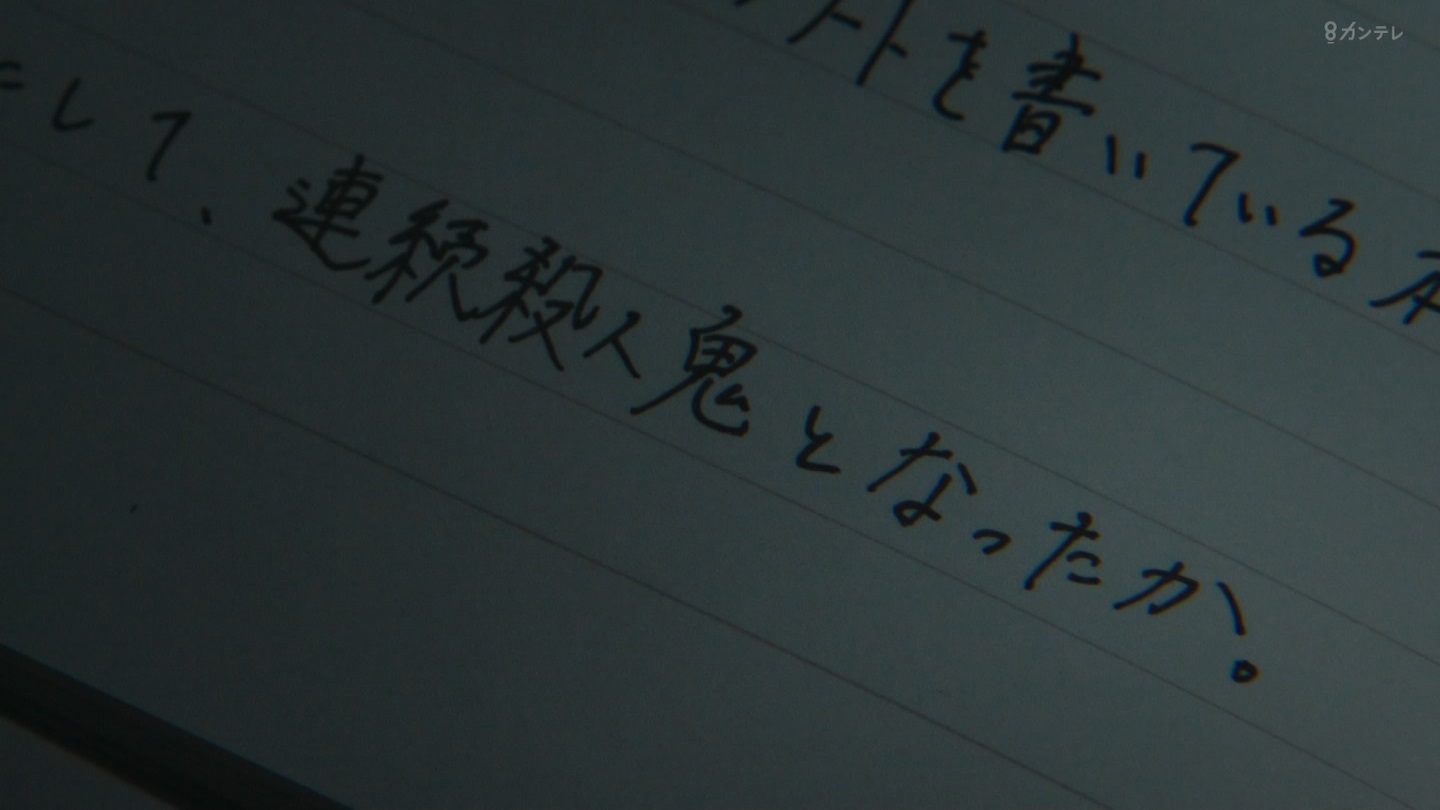 カンテレ
ノートを書いている本
にして、連続殺人鬼となったか。